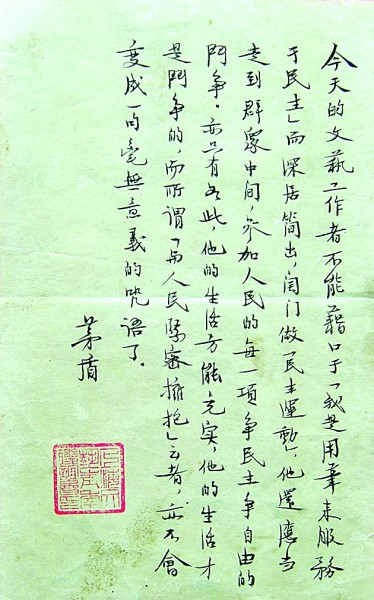 今天的文藝工作者不能藉口于「我是用筆来服務
于民主」而深居简出，闭门做「民主運動」，他還應当
走到群眾中间，参加人民的每一項争民主争自由的
鬥争．亦只有如此，他的生活方能充实，他的生活才
是鬥争的，而所謂「与人民緊密擁抱」云者，亦不會
变成一句毫無意義的咒语了．
茅盾